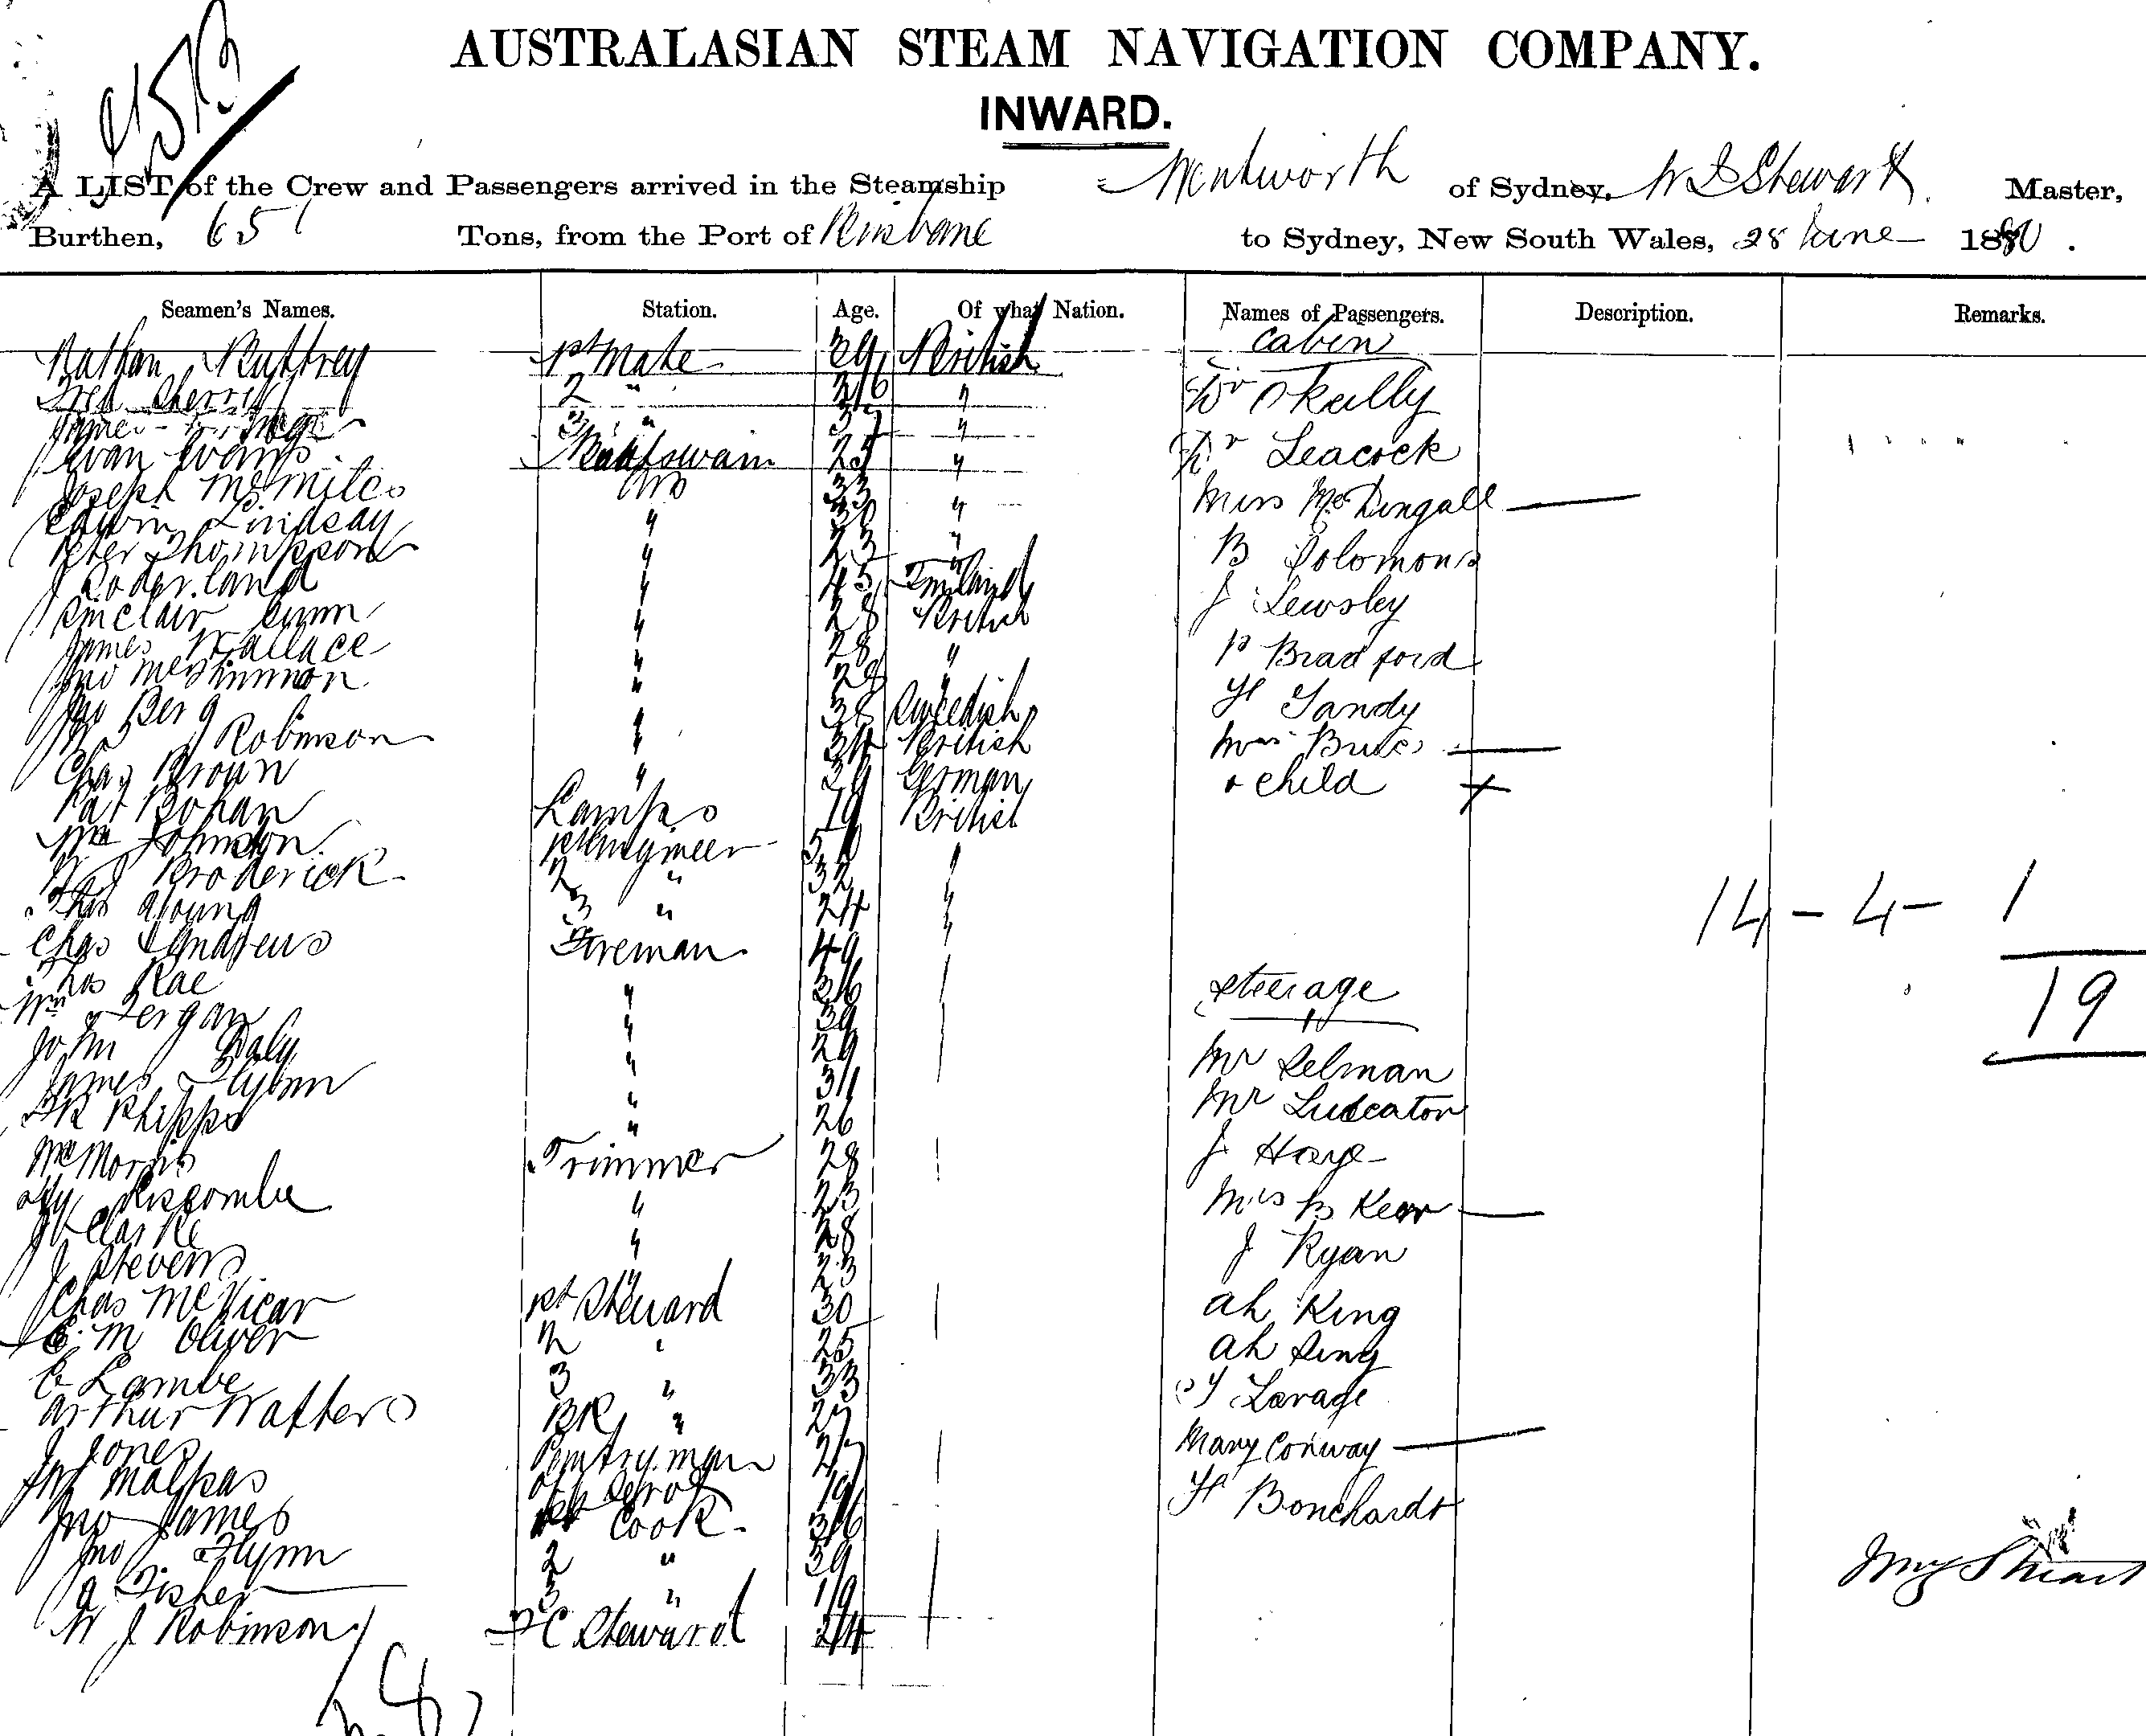 AUSTRALASIAN STEAM NAVIGATION COMPANY.
INWARD.
A LIST of the Crew and Passengers arrived in the Steamship Wentworth of Sydney, W D Stewart Master,
Burthen, 651 Tons, from the Port of Brisbane to Sydney, New South Wales, 28 June 1880.
Seamen's Names. Station. Age. Of what Nation. Names of Passengers. Description. Remarks.
Cabin
Nathan 1st Mate 29 British
Fred Sherriff 2 " 36 " Dr Skully
James 3 " 37 "
Evan Evans Boatswain 25 " Dr Leacock
Joseph AB 33 " Miss McDingall
Edwin Lindsay " 30 "
Peter Thompson " 23 " B Solomons
J Soderland " 45 Finland
Sinclair Gunn " 28 British J Lewsley
James Wallace " 28 " P Bradford
Jno McKinnon " 28 "
Jno Berg " 38 Swedish H Tandy
Robinson " 34 British Mrs Bute
Chas Broun " 29 German & child
Pat Bohan Lamps 19 British
Wm Johnson 1st Engineer 51
W J Broderick 2 " 32 "
Thos Young 3 " 24 " 14 - 4 - 1
Chas Andrews Fireman 49
Thos Rae " 36 Steerage 19
Wm Fergan " 39
John Daly " 29 Mr Selman
James Flynn " 31
Phipps " 26 Mr Luscator
Wm Morris Trimmer 28 J Haye
Hy Liscombe " 23 Mrs B Kerr
J Clarke " 28 J Ryan
J Stevens " 23
Chas McVicar 1st Steward 30 Ah King
E. M Oliver 2 " 25 Ah Sing
E Lambe 3 " 33 Lavage
Arthur Walters BK " 27
J Jones Pantryman 27 Mary Conway
Malpas 19 H Bonchardt
Jno James 1st Cook 36
Jno Flynn 2 " 39
A Fisher 3 " 19
W J Robinson FC Steward 24